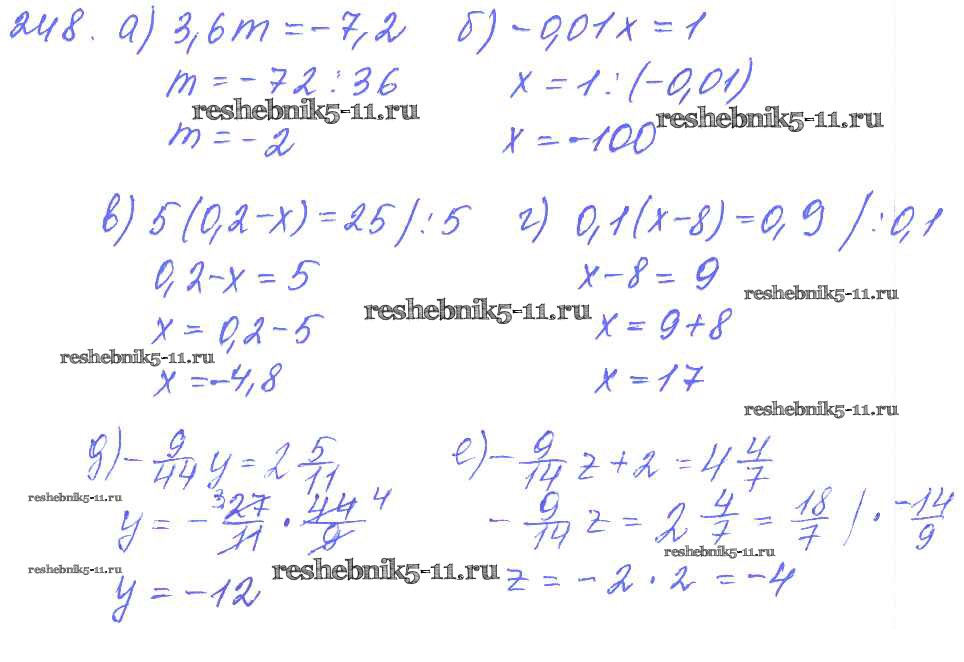 248. а) 3,6m = -7,2 б) -0,01x = 1
m = -72 : 36 x = 1 : (-0,01)
reshebnik5-11.ru reshebnik5-11.ru
m = -2 x = -100
в) 5(0,2-x) = 25 / : 5 г) 0,1(x-8) = 0,9 / : 0,1
0,2-x = 5 x-8 = 9
reshebnik5-11.ru reshebnik5-11.ru
x = 0,2-5 x = 9+8
reshebnik5-11.ru
x = -4,8 x = 17
reshebnik5-11.ru
д) - 9/44 y = 2 5/11 е) - 9/14 z + 2 = 4 4/7
reshebnik5-11.ru
y = - 3 27/11 · 44/9 4 - 9/14 z = 2 4/7 = 18/7 / · -14/9
reshebnik5-11.ru
reshebnik5-11.ru reshebnik5-11.ru
y = -12 z = -2 · 2 = -4